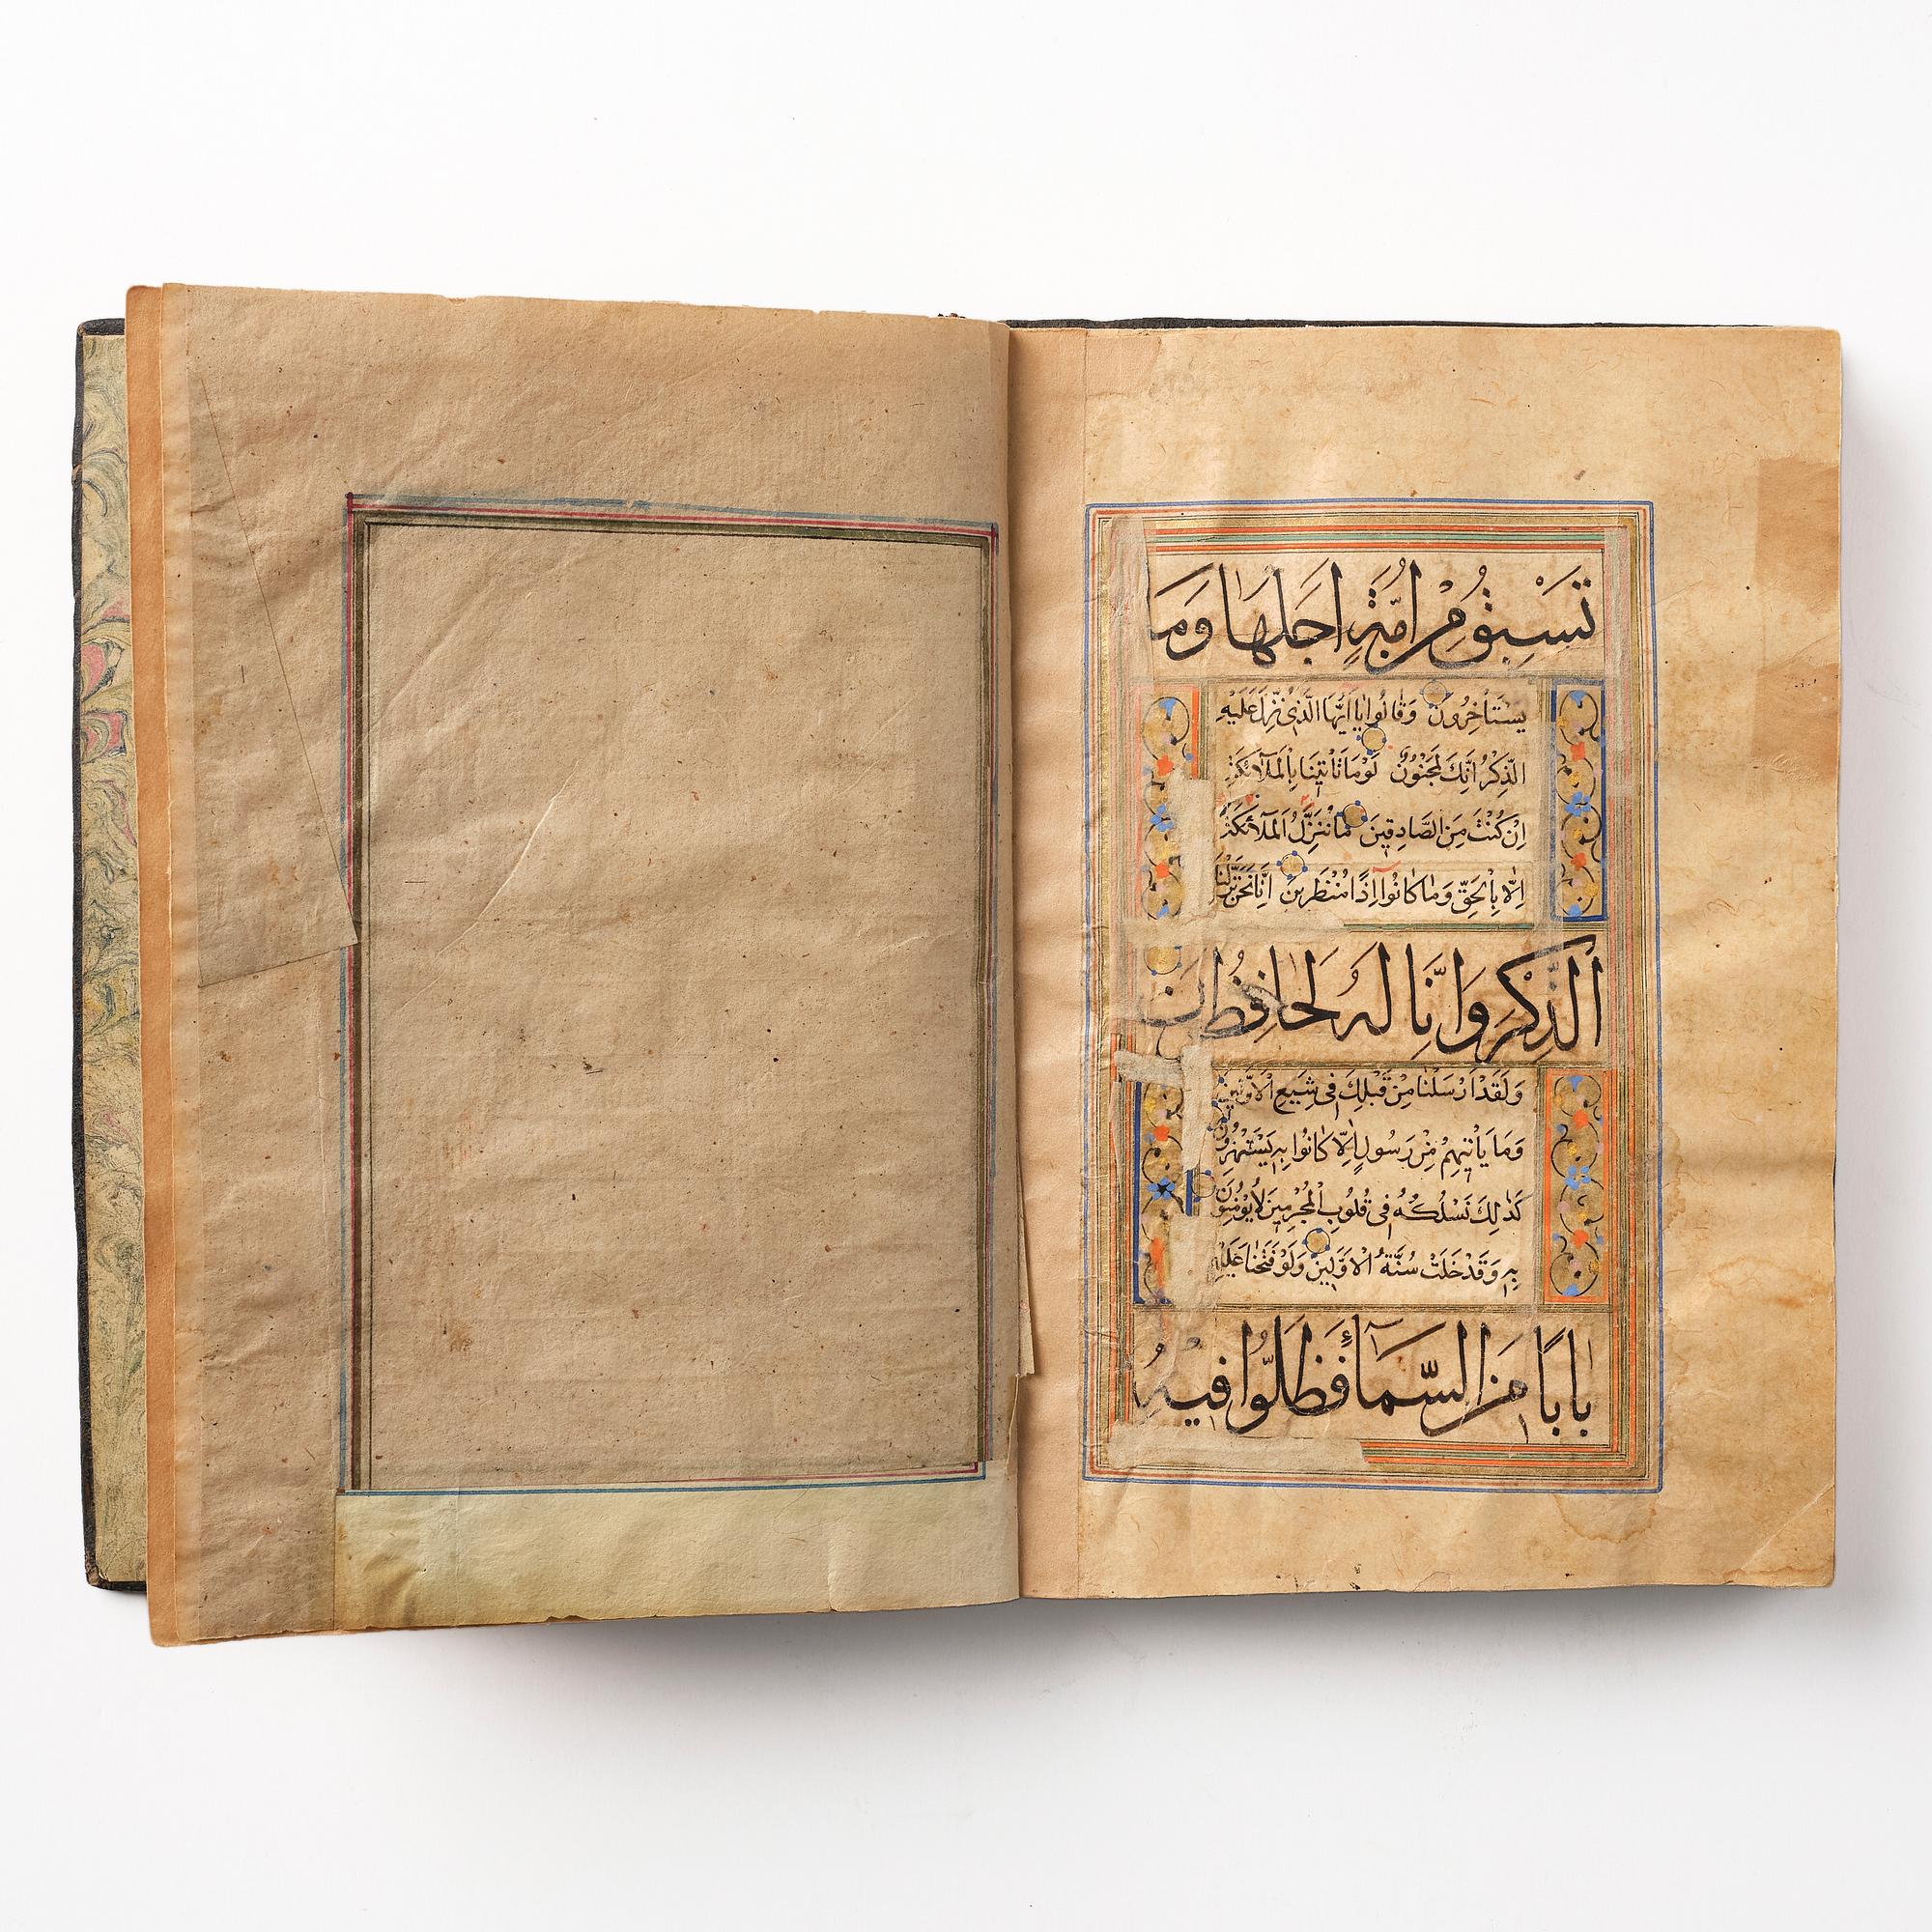 تَسْبِقُ مِنْ اُمَّةٍ اَجَلَهَا وَمَا
يَسْتَأْخِرُونَ وَقَالُوا يَا اَيُّهَا الَّذِى نُزِّلَ عَلَيْهِ
الذِّكْرُ اِنَّكَ لَمَجْنُونٌ لَوْ مَا تَاْتِينَا بِالْمَلَآئِكَةِ
اِنْ كُنْتَ مِنَ الصَّادِقِينَ مَا نُنَزِّلُ الْمَلَآئِكَةَ
اِلَّا بِالْحَقِّ وَمَا كَانُوآ اِذًا مُنْظَرِينَ اِنَّا نَحْنُ نَزَّلْنَا
الذِّكْرَ وَاِنَّا لَهُ لَحَافِظُونَ
وَلَقَدْ اَرْسَلْنَا مِنْ قَبْلِكَ فِى شِيَعِ الْاَوَّلِينَ
وَمَا يَاْتِيهِمْ مِنْ رَسُولٍ اِلَّا كَانُوا بِهِ يَسْتَهْزِؤُنَ
كَذٰلِكَ نَسْلُكُهُ فِى قُلُوبِ الْمُجْرِمِينَ لَا يُؤْمِنُونَ
بِهِ وَقَدْ خَلَتْ سُنَّةُ الْاَوَّلِينَ وَلَوْ فَتَحْنَا عَلَيْهِمْ
بَابًا مِنَ السَّمَآءِ فَظَلُّوا فِيهِ